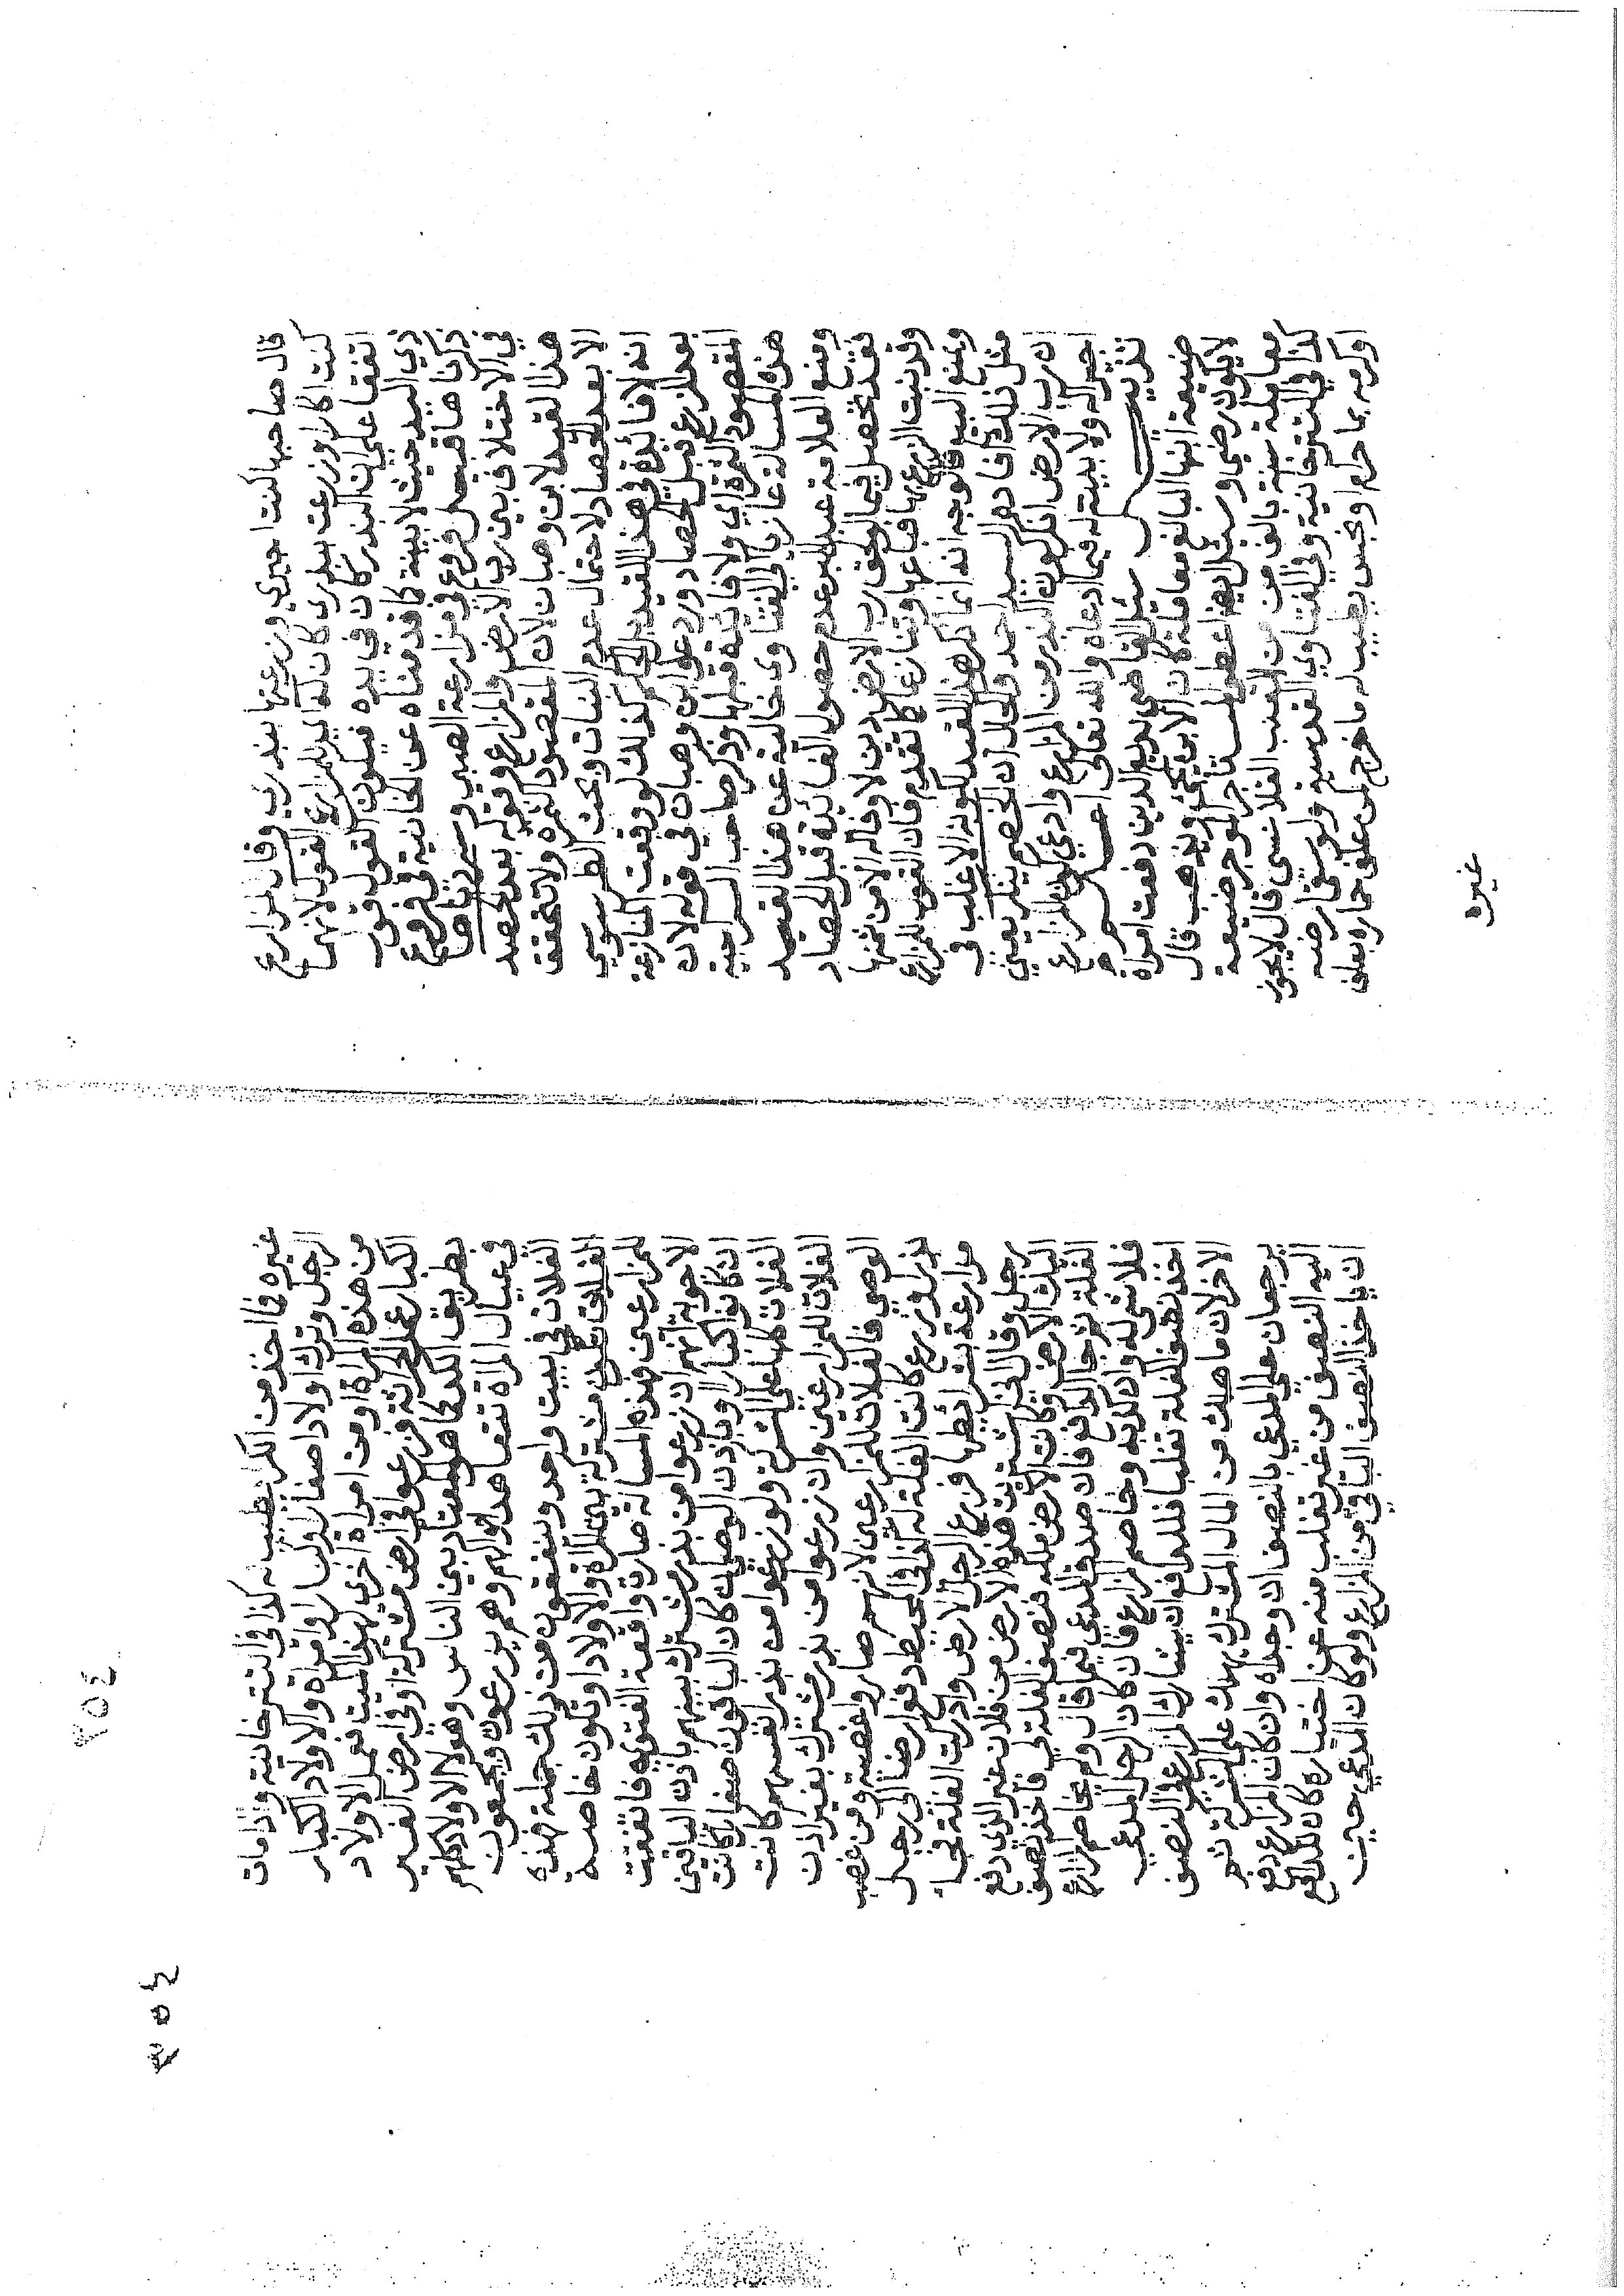 قال صاحبها كنت اجيري وزرعتها ببذري وقال المزارع
كنت اكارا وزرعت ببذري كان القول للمزارع لانهما
اتفقا على ان البذر كان في يده فيكون القول قول
ذي اليد حيث لا بينة كما قدمناه عن الخانية في فروع
ذكرناها قبيل فروع في مزارعة الصبي وسرناها
في الاختلاف بين رب الارض والمزارع وقوله بعد الحصد
هذا القيد لابن وهبان لان المقصود الثمرة ولا تتحقق
الا بعد الحصاد لاحتمال عدم النبات وبحث الطرسوسي
انه لا فائدة في هذا القيد بل الحكم كذلك لو وقعت المنازعة
بعد الزرع قبل الحصاد ورده ابن وهبان في قوله لان
المقصود الثمرة اي ولا فائدة قبلها وذكر صاحب السراجية
هذه المسالة عازيا الى الفتاوى خالية عن هذا القيد
ومنع العلامة عبد البر عدم حصول الفائدة قبل الحصاد
فقد تحصل فيما لو لحق رب الارض دين لا وفاء له الا من ثمنها
وقد نبت الزرع بها فباعها وتنازعا كما تقدم فان القول للمزارع
ويمتنع البيع فالوجه انه انما ذكر هذا القيد لكونه الاغلب في
مثل ذلك افاده السيد احمد والحال ان الخصم ينكر يعني
ان رب الارض انكر كون البذر من المزارع وادعى كون المزارع
اجيرا له ولا بينة له فيما ادعاه والله تعالى اعلم
تذييل سئل القاضي بديع الدين دفعت امراة
ضيعة ابنها البالغ معاملة كان الابن يجيء ويذهب قال
لا يكون رضى وسئل ايضا عطى المستاجر الموجر ضيعة
معاملة سنة بالف من من العنب الفلا نسي قال لا يجوز
كذا في التترخانية وفي الفتاوى العد سيو ولو سقى ارضه
او كرمه بما حرام او نجس يطيب له ما خرج كمن علف حماره بعلف
غيره
غيره فما اخذ من الكرا يطيب له كذا في التترخانية واذا مات
الرجل وترك اولادا صغارا وكبارا وامراة والاولاد الكبار
من هذه المراة او من امراة اخرى لهذا الميت فعمل الاولاد
الكبار عمل الحراثة فزرعوا في ارض مشتركة او في ارض الغير
بطريق الكدة كما هو المعتاد بين الناس وهولا الاولاد كلهم
في عيال المراة تتعاهد احوالهم وهم يزرعون ويجمعون
الغلات في بيت واحد وينفقون من ذلك جملة فهذه
الغلات تكون مشتركة بين المراة والاولاد او تكون خاصة
للمزارعين فهذه المسالة صارت واقعة الفتوى فاتفقت
الاجوبة انهم ان زرعوا من بذر مشترك بينهم باذن الباقين
ان كانوا كبارا او باذن الوصي ان كان الباقون صغارا كانت
الغلات كلها على الشركة ولو زرعوا من بذر انفسهم كانت
الغلات للمزارعين وان زرعوا من بذر مشترك بغير اذن
الوصي فالغلات للمزارعين لانهم صاروا غصبة ومن غصب
بذرا وزرع كانت الغلة له كذا في المحيط دفع ارضا الى رجل
مزارعة بشرائطها فزرع الرجل الارض وادركت الغلة فجاء
رجل وقال اني اشتريت هذه الارض من فلان غير الذي دفع
اليك الارض وكانت الارض ملكه فنصف الغلة لي فاخذ نصف
الغلة ثم جا الدافع فان صدق المدعي فيما قال ولم يخاصم المزارع
فلا شيء له وان كذبه وخاصم المزارع فان كان الرجل المدعي
اخذ نصف الغلة تغلبا فللدافع ان يشارك المزارع في النصف
الاخر لان ما هلك من المال المشترك يهلك على الشركة ثم
يرجعان على المدعي بالنصف ان وجداه وان كان المزارع دفع
اليه النصف من غير تغلب منه عن اختياره كان للدافع
ان ياخذ النصف الباقي من المزارع ولو كان المدعي حين
٣٥٤
٣٥٤